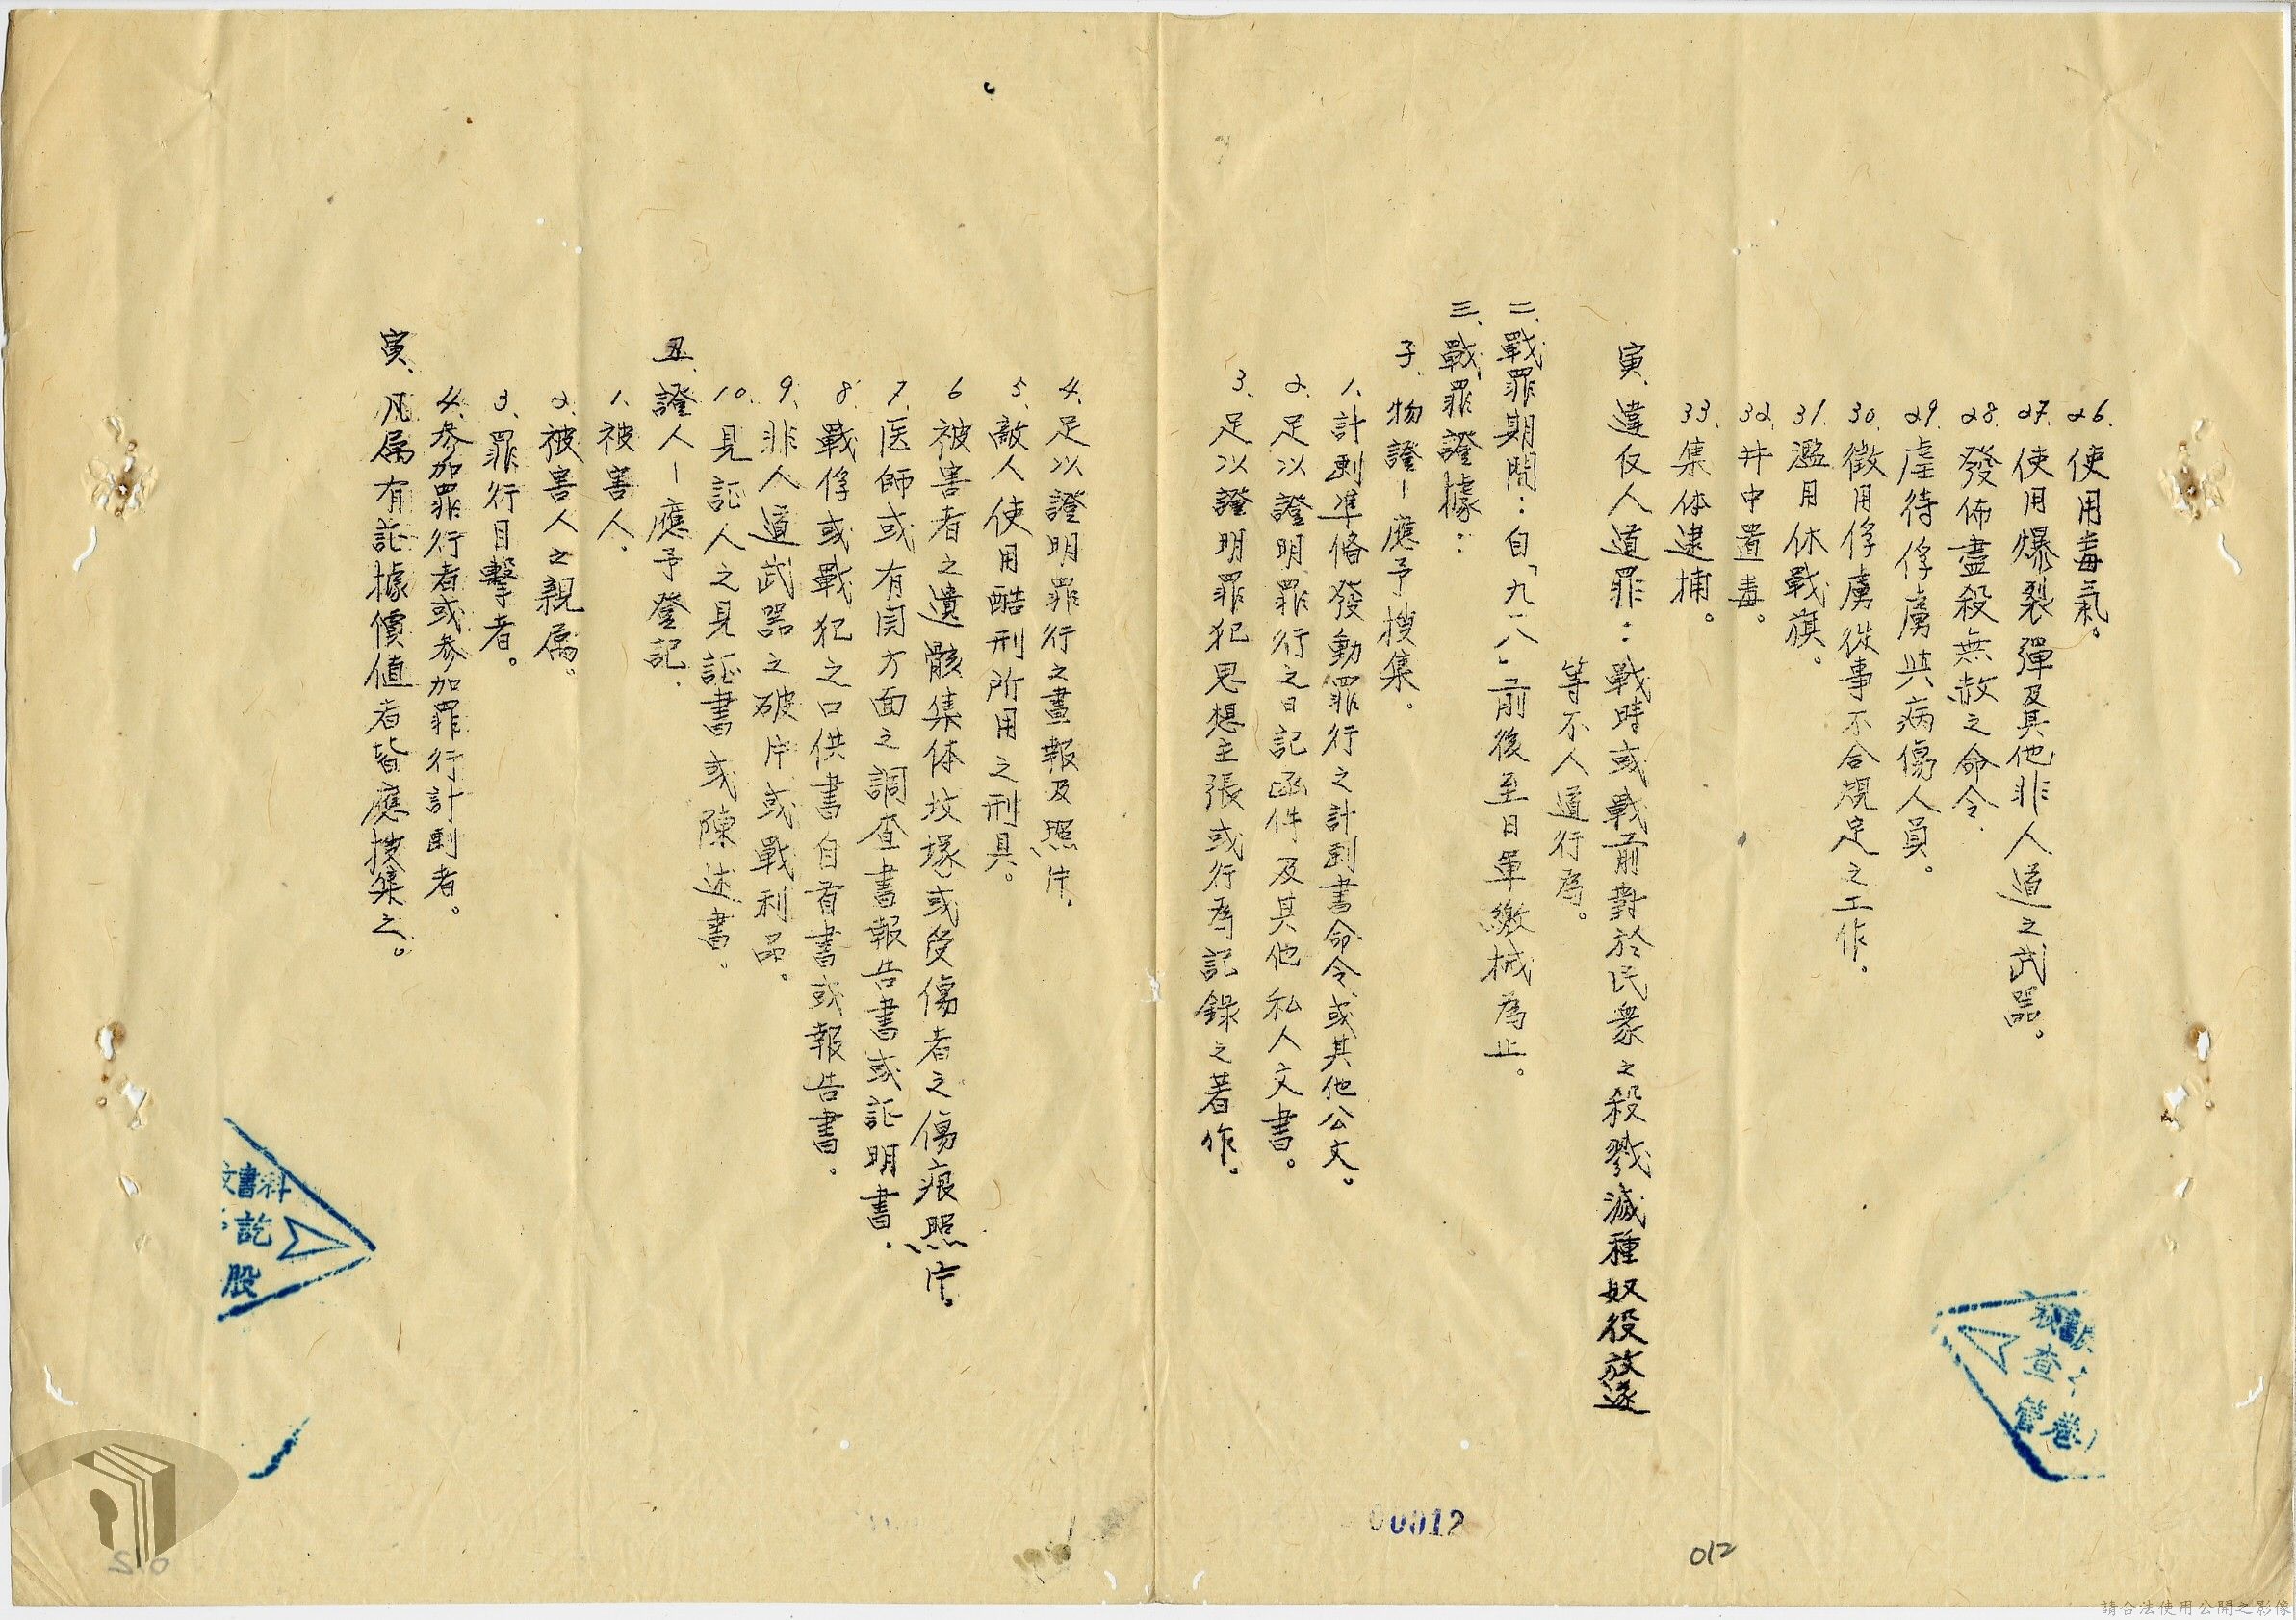 26.使用毒氣。
27.使用爆裂彈及其他非人道之武器。
28.發佈盡殺無赦之命令.
29.虐待俘虜與病傷人員。
30.徵用俘虜從事不合規定之工作。
31.濫用休戰旗。
32.井中置毒。
33.集体逮捕。
寅、違仮人道罪：戰時或戰前對於民衆之殺戮滅種奴役放逐
等不人道行為。
二、戰罪期間：自「九一八」前後至日軍繳械為止。
三、戰罪證據：
子、物證－應予搜集.
1.計劃準備發動罪行之計劃書命令或其他公文。
2.足以證明罪行之日記函件及其他私人文書。
3.足以證明罪犯思想主張或行為記錄之著作。
4.足以證明罪行之畫報及照片.
5.敵人使用酷刑所用之刑具。
6被害者之遺骸集体坟塚或受傷者之傷痕照片。
7.医師或有関方面之調查書報告書或証明書.
8.戰俘或戰犯之口供書自首書或報告書.
9.非人道武器之破片或戰利品。
10.見証人之見証書或陳述書.
丑.證人－應予登記.
1.被害人.
2.被害人之親屬。
3.罪行目擊者。
4.参加罪行者或参加罪行計劃者。
寅、凡屬有証據價值者皆應搜集之。
文書科
訖
股
查
管卷
00012
012
請合法使用公開之影像